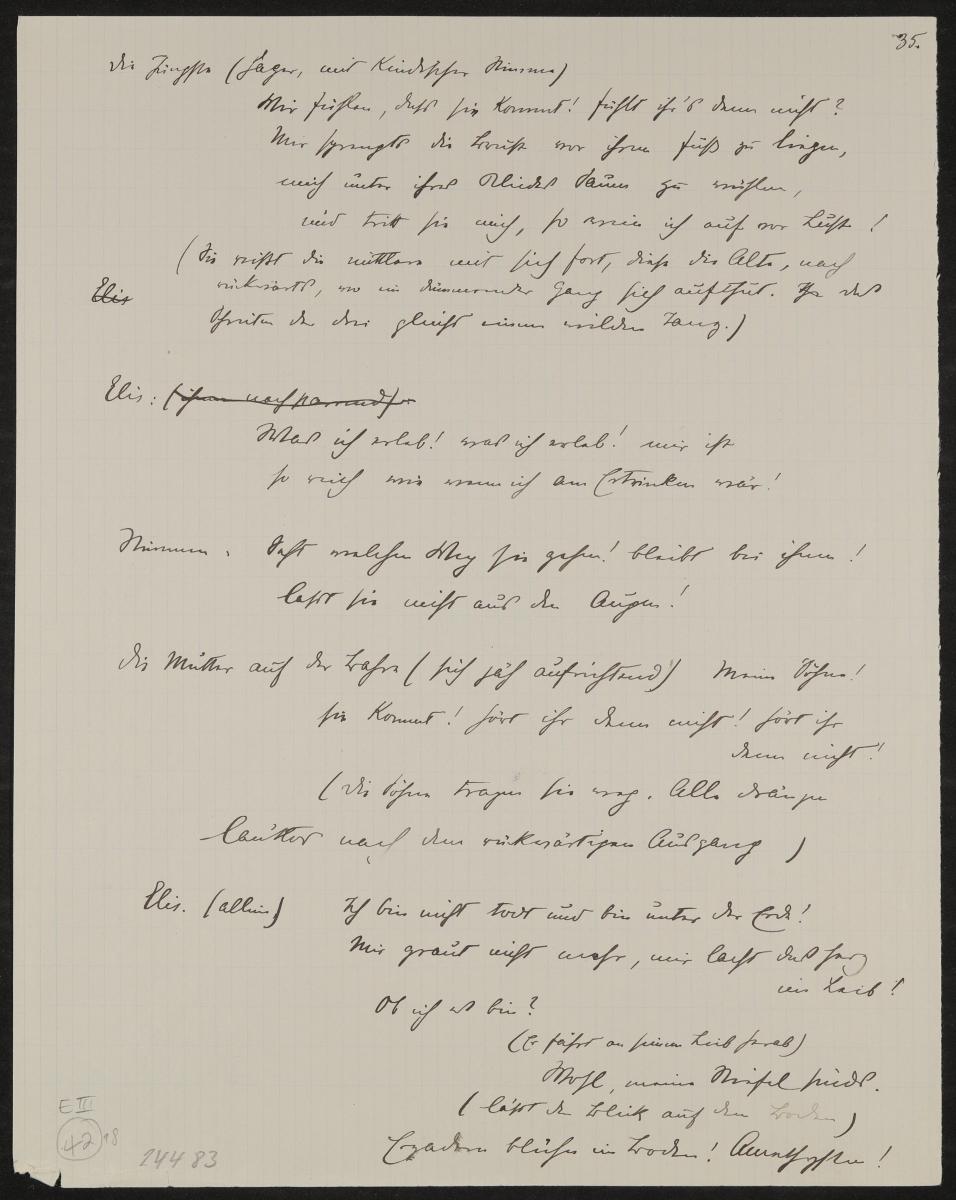 35.
die Jüngste (Jäger, mit kindischer Stimme)
Wir fühlen, dass sie kommt! fühlt ihr's denn nicht?
Mir sprengts die Brust vor ihrem Fuß zu liegen,
mich unter ihres Kleides Saum zu wühlen,
und tritt sie mich, so wein ich auf vor Lust!
(Sie reißt die mittlere mit sich fort, diese die Alte, nach
Elis
rückwärts, wo ein dämmernder Gang sich aufthut. das
Schreiten der drei gleicht einem wilden Tanz.)
Elis: (ihnen nachstarrend)
Was ich erleb! was ich erleb! mir ist
so reich wie wenn ich am Ertrinken wär!
Stimmen: Seht welchen Weg sie gehen! bleibt bei ihnen!
lasst sie nicht aus den Augen!
die Mutter auf der Bahre (sich jäh aufrichtend) Meine Söhne!
sie kommt! hört ihr denn nicht! hört ihr
denn nicht!
(die Söhne tragen sie weg. Alle drängen
lautlos nach dem rückwärtigen Ausgang)
Elis. (allein) Ich bin nicht todt und bin unter der Erde!
Mir graut nicht mehr, mir lacht das Herz
im Leib!
Ob ich es bin?
(Er fährt an seinem Leib herab)
Wohl, meine Stiefel sinds.
(lässt den Blick auf den Boden)
Erzadern blühen im Boden! Amethysten!
E III
42 18
24483